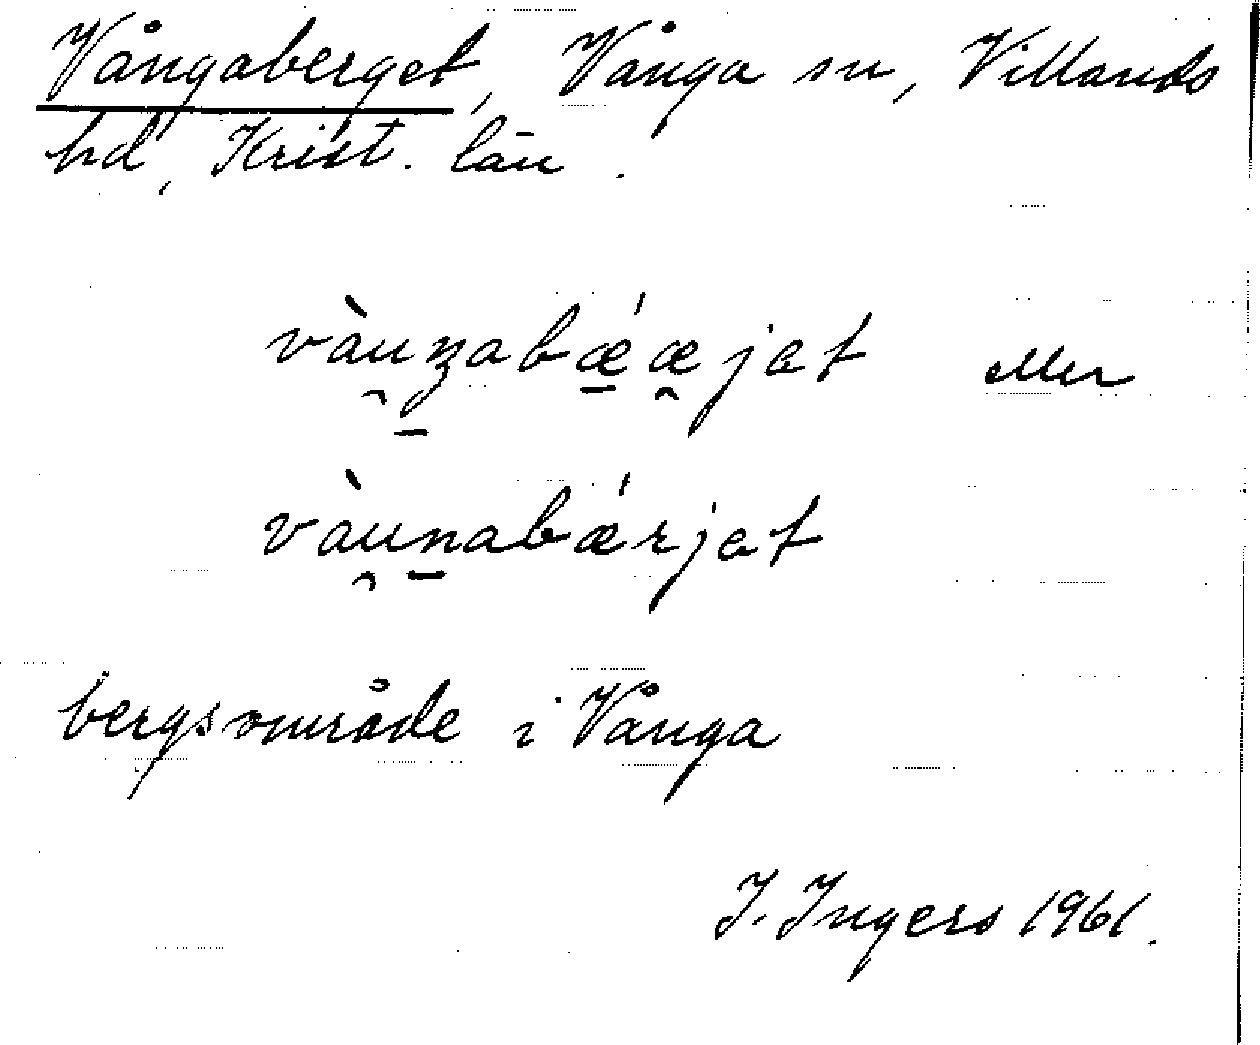 Vångaberget, Vånga sn, Villands
hd, Krist. län.
vàu̯ŋabǽæ̯jat eller
vàu̯nabǽrjat
bergsområde i Vånga
I. Ingers 1961.